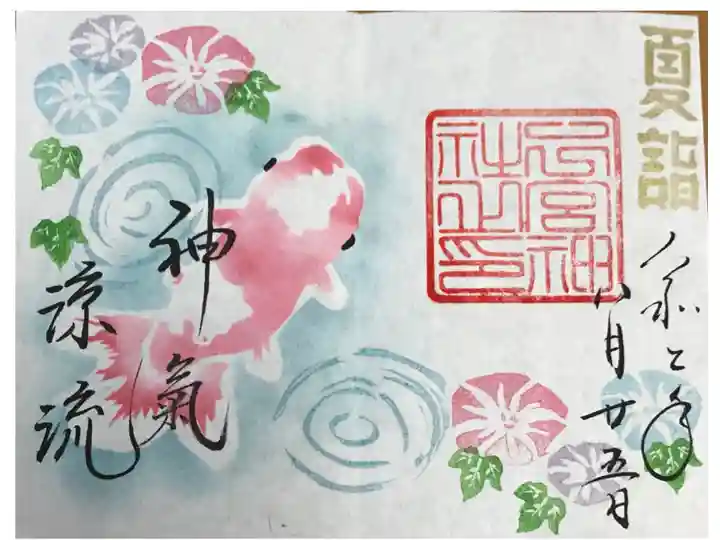 夏詣
令和二年
八月廿五日
宮神
社之印
神氣
涼流